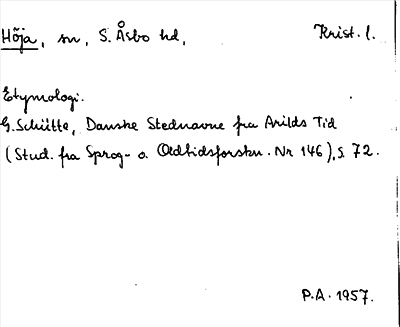 Höja, sn, S. Åsbo hd, Krist. l.
Etymologi.
G. Schütte, Danske Stednavne fra Arilds Tid
(Stud. fra Sprog- o. Oldtidsforskn. Nr 146), s. 72.
P.A. 1957.